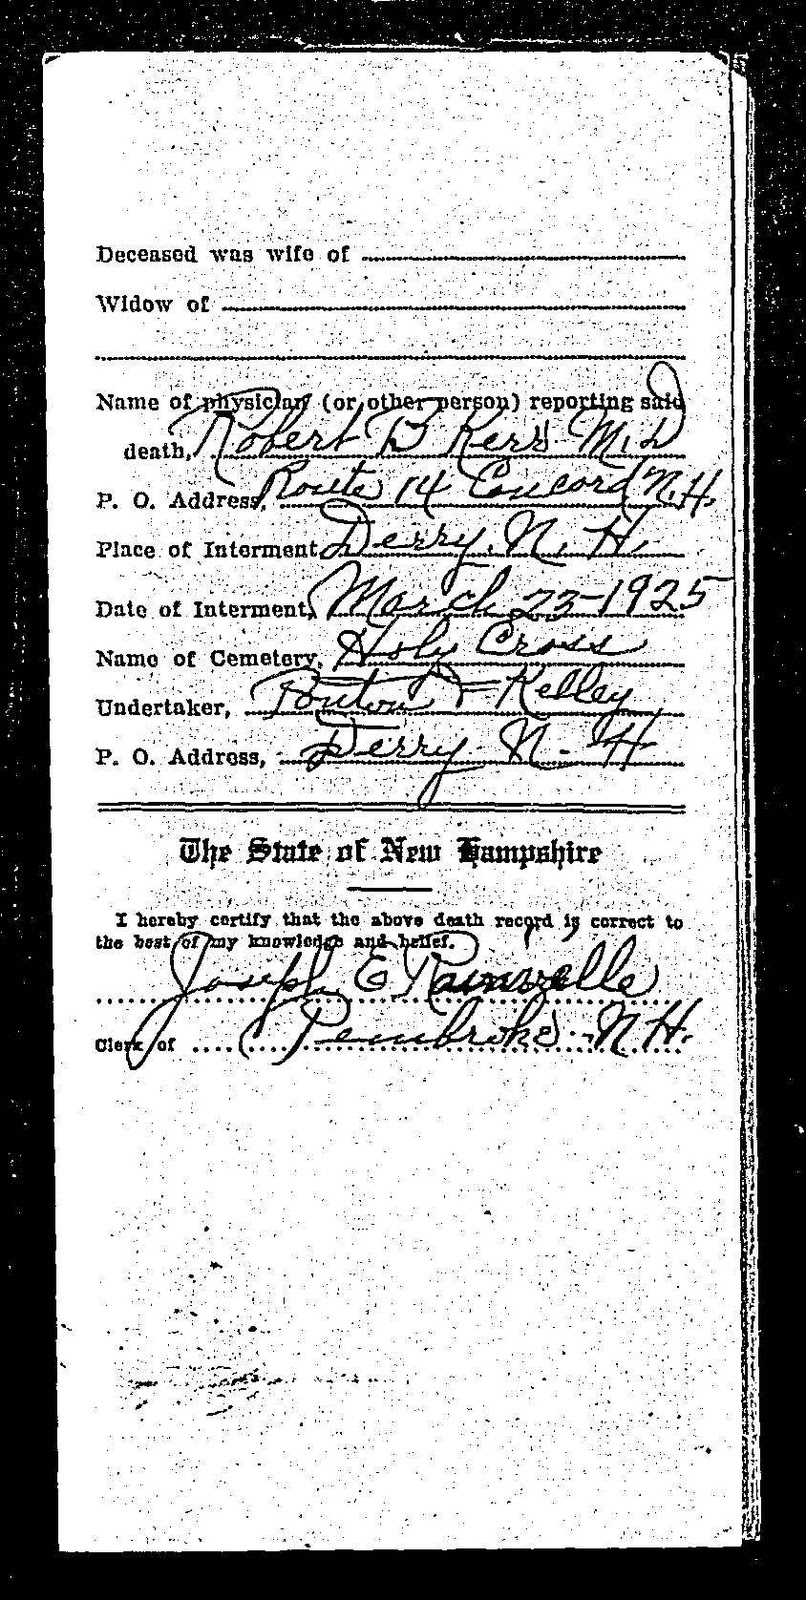 Deceased was wife of
Widow of
Name of physician (or other person) reporting said
death, Robert B Kerr M.D
P. O. Address, Route 14 Concord N.H.
Place of Interment, Derry, N. H.
Date of Interment, March 23-1925
Name of Cemetery, Holy Cross
Undertaker, & Kelley
P. O. Address, Derry N-H
The State of New Hampshire
I hereby certify that the above death record is correct to
the best of my knowledge and belief.
Joseph E Rainville
Clerk of Pembroke N H.